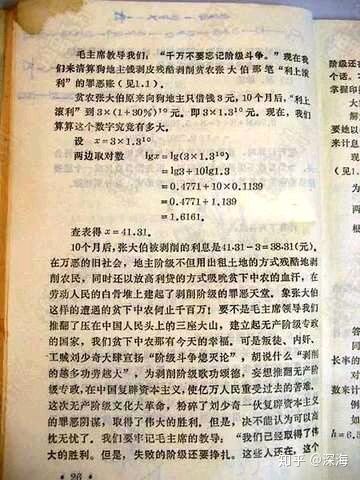 毛主席教导我们：“千万不要忘记阶级斗争。”现在我
们来清算狗地主钱剥皮残酷剥削贫农张大伯那笔“利上滚
利”的罪恶账（见1.1）。
贫农张大伯原来向狗地主只借钱3元，10个月后，“利上
滚利”到3×(1+30%)¹⁰元。即3×1.3¹⁰元。现在，我们
算算这个数字究竟有多大。
设 x=3×1.3¹⁰
两边取对数 lgx=lg(3×1.3¹⁰)
=lg3+10lg1.3
=0.4771+10×0.1139
=0.4771+1.139
=1.6161.
查表得 x=41.31.
10个月后，张大伯被剥削的利息是41.31-3=38.31(元)。
在万恶的旧社会，地主阶级不但用出租土地的方式残酷地剥
削农民，同时还以放高利贷的方式吮吸贫下中农的血汗，在
劳动人民的白骨堆上建起了剥削阶级的罪恶天堂。象张大伯
这样的遭遇的贫下中农何止千百万！要不是毛主席领导我们
推翻了压在中国人民头上的三座大山，建立起无产阶级专政
的国家，我们贫下中农那有今天的幸福。可是叛徒、内奸、
工贼刘少奇大肆宣扬“阶级斗争熄灭论”，胡说什么“剥削
的越多功劳越大”，为剥削阶级歌功颂德，妄想推翻无产阶
级专政，在中国复辟资本主义，使亿万人民重受过去的苦难。
这次无产阶级文化大革命，粉碎了刘少奇一伙复辟资本主义
的罪恶阴谋，取得了伟大的胜利。但是，决不能认为可以高
枕无忧了。我们要牢记毛主席的教导：“我们已经取得了伟
大的胜利。但是，失败的阶级还要挣扎。这些人还在，这个
· 26 ·
阶级还在
个话。
掌握印
要她以
来计息
(见1.
为
两
根
答
同
长率的
对
数来计
例
如
h=6.
知乎 @深海